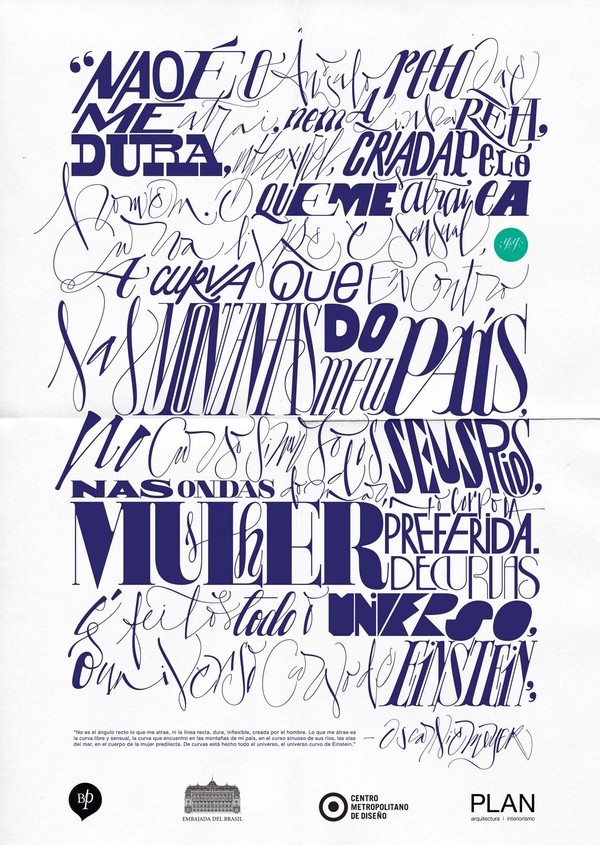 “NÃO É O ângulo reto que
ME atrai, nem A linha RETA,
DURA, inflexível, CRIADA PELO
homem. O QUE ME atrai É A
Curva livre e sensual,
A CURVA QUE Encontro
nas MONTANHAS DO meu PAÍS,
no Curso sinuoso dos SEUS RIOS,
NAS ONDAS do mar, no corpo DA
MULHER PREFERIDA.
DE CURVAS
é feito todo o UNIVERSO,
O universo Curvo de EINSTEIN,”
- Oscar Niemeyer
"No es el ángulo recto lo que me atrae, ni la línea recta, dura, inflexible, creada por el hombre. Lo que me atrae es
la curva libre y sensual, la curva que encuentro en las montañas de mi país, en el curso sinuoso de sus ríos, las olas
del mar, en el cuerpo de la mujer predilecta. De curvas está hecho todo el universo, el universo curvo de Einstein."
Bp
EMBAJADA DEL BRASIL
CENTRO
METROPOLITANO
DE DISEÑO
PLAN
arquitectura | interiorismo